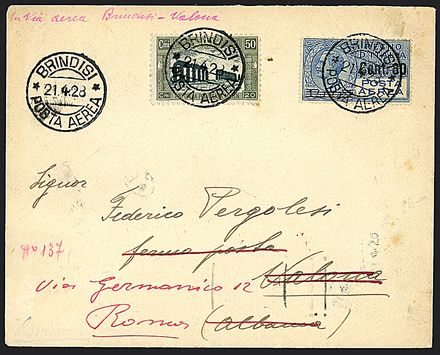 Via aerea Brindisi-Valona
BRINDISI
21.4.28
POSTA AEREA
50
BRINDISI
21.4.28
POSTA AEREA
20
BRINDISI
POSTA AEREA
POSTA
AEREA
Signor
Federico Pergolesi
fermo posta
Valona
No 137
Via Germanico 12
Roma (Albania)